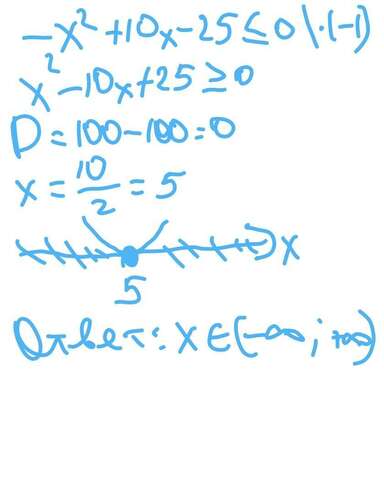 -x² + 10x - 25 ≤ 0 \ · (-1)
x² - 10x + 25 ≥ 0
D = 100 - 100 = 0
x = 10/2 = 5
x
5
Ответ: x ∈ (-∞; +∞)